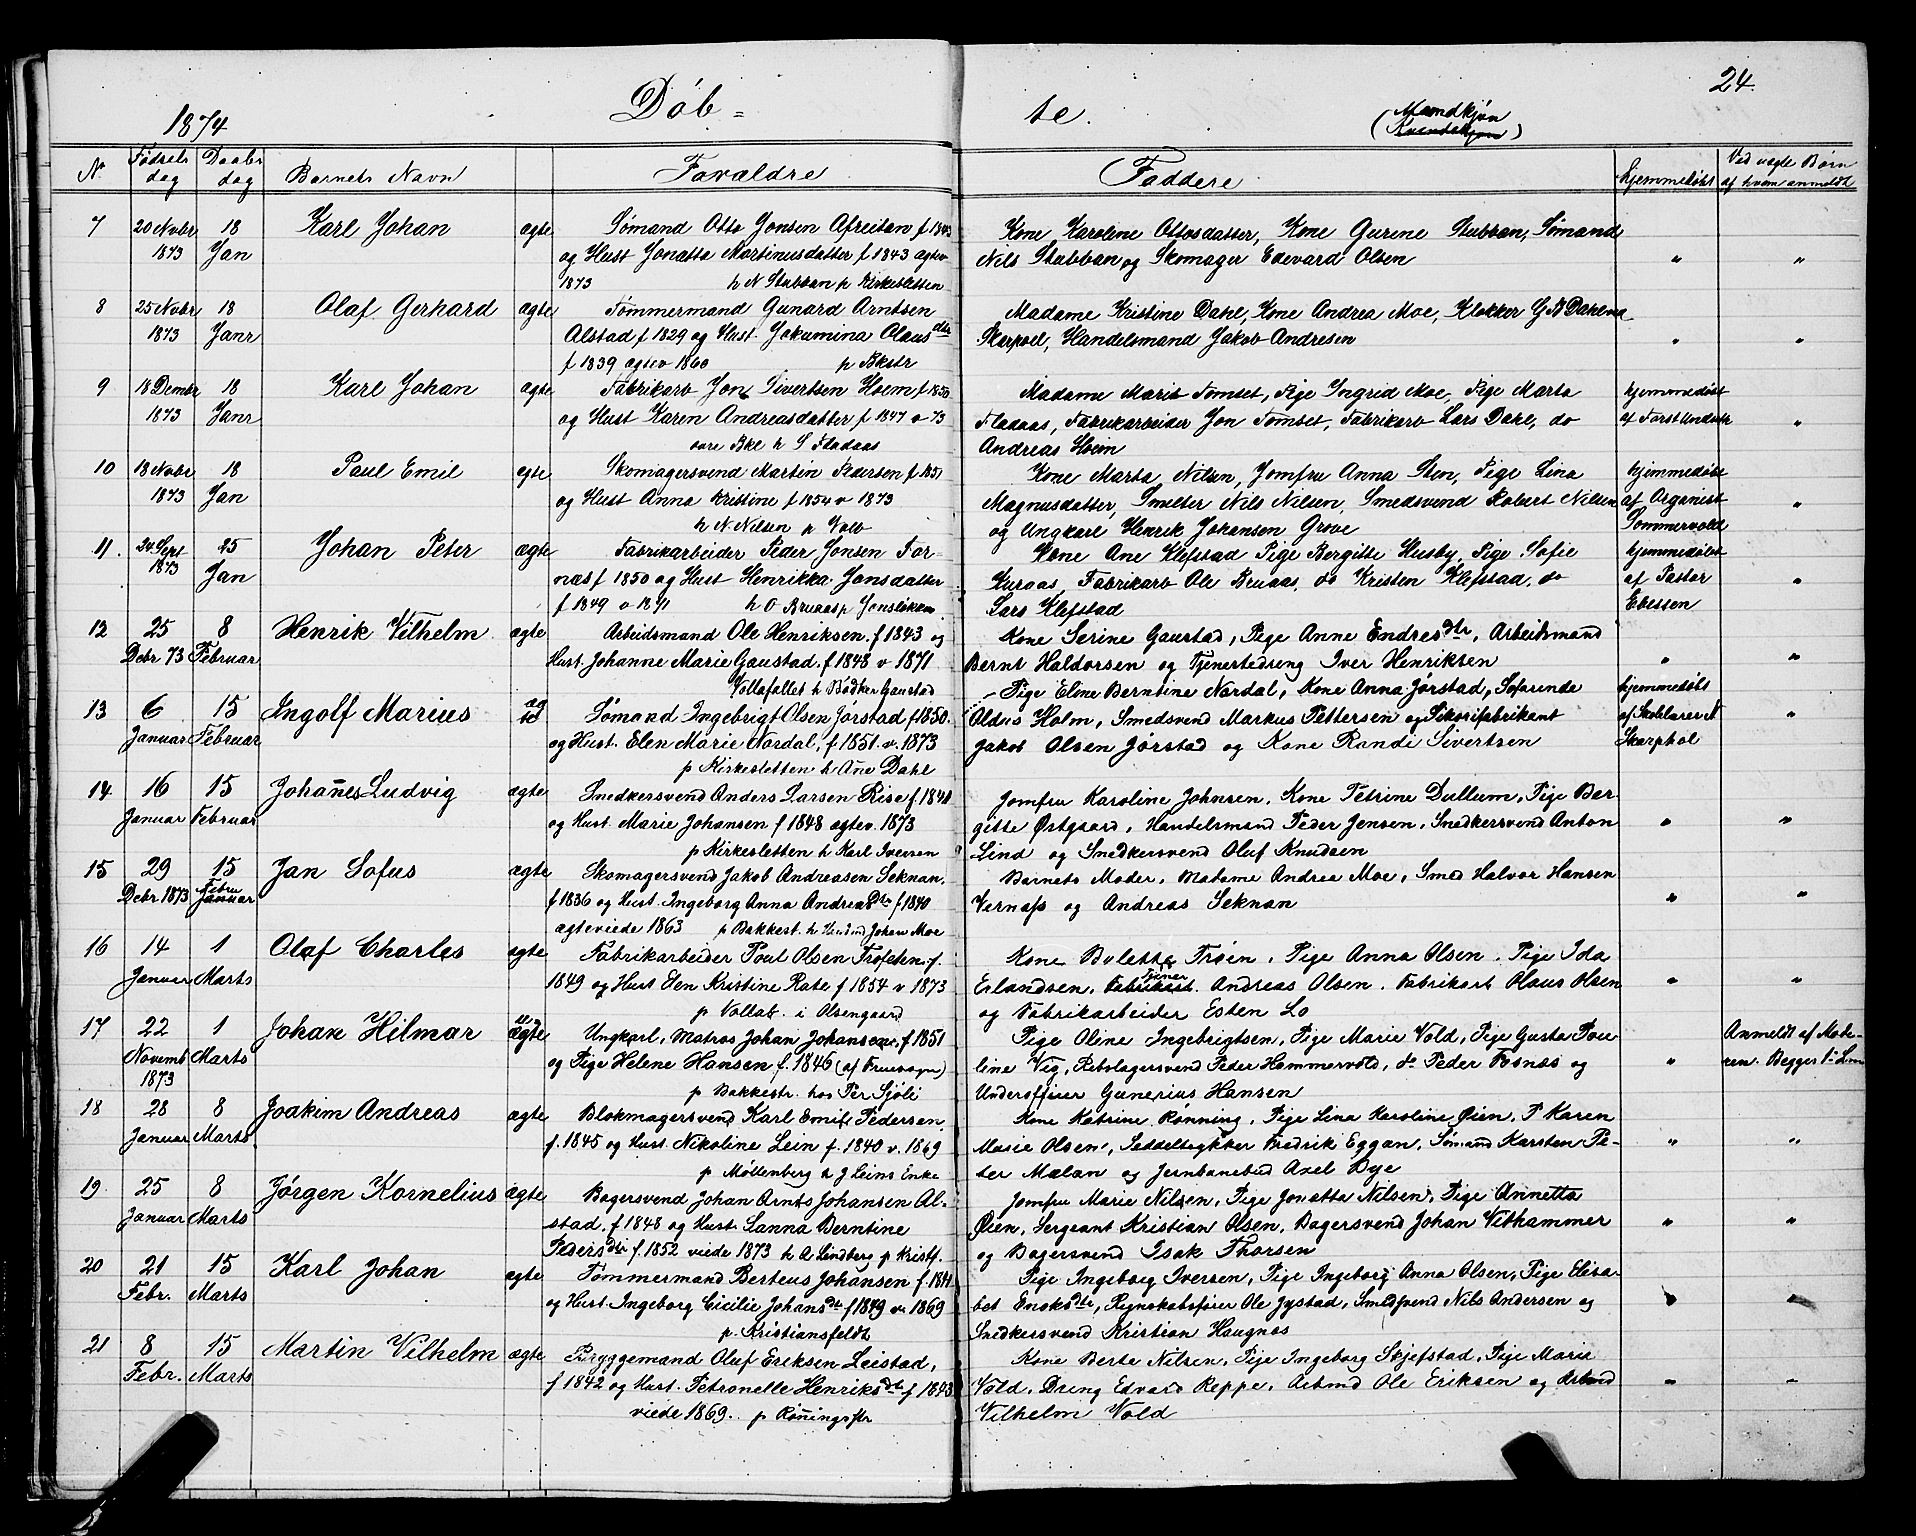 1874
Døb=
te.
Mandkjøn
(Kvindekjøn)
24.
Nr
Fødsels dag
Daabs dag
Barnets Navn
Forældre
Faddere
hjemmedøbt
Ved uægte Børn
af hvem anmeldt
7 20 Novbr 18 Karl Johan ægte Sømand Otto Jonsen Afreitan f 1843
1873 Jan og Hust Jonatta Martinusdatter f 1843 ægtev
1873 h N Stubban p Kirkesletten
Kone Karoline Ottosdatter, Kone Gurine Stubban, Sømand
Nils Stubban og Skomager Edevard Olsen " "
8 25 Novbr 18 Olaf Gerhard ægte Tømmermand Gunard Arntsen
1873 Janr Alstad f 1829 og Hust Jakumina Olausdtr
f 1839 ægtev 1860 p Bkstr
Madame Kristine Dahl, Kone Andrea Moe, Klokker
Skarpoel, Handelsmand Jakob Andresen " "
9 18 Dembr 18 Karl Johan ægte Fabrikarb Jon Sivertsen Hoem f 1850
1873 Janr og Hust Karen Andreasdatter f 1847 v 73
øvre Bkl h S Fladaas
Madame Marit Tomset, Pige Ingrid Moe, Pige Marta hjemmedøbt
Fladaas, Fabrikarbeider Jon Tomset, Fabrikarb Lars Dahl, do af "
Andreas Hoem
10 18 Novbr 18 Paul Emil ægte Skomagersvend Martin Pedersen f 1851
1873 Jan og Hust Anna Kristine f 1854 v 1873
h N. Nilsen p Volo
Kone Marta Nilsen, Jomfru Anna Sten, Pige Lina hjemmedøbt
Magnusdatter, Smelter Nils Nilsen, Smedsvend Robert Nilsen af Organist "
og Ungkarl Henrik Johansen Grove Sommervold
11 24 Sept 25 Johan Peter ægte Fabrikarbeider Peder Jonsen For-
1873 Jan næs f 1850 og Hust Henrikka Jonsdatter
f 1849 v 1871 h O Bruaas p Jonsløkken
Kone Ane Klefstad Pige Bergitte Husby, Pige Sofie hjemmedøbt
Kuraas, Fabrikarb Ole Bruaas, do Kristen Klefstad, do af Pastor "
Lars Klefstad Ebessen
12 25 8 Henrik Vilhelm ægte Arbeidsmand Ole Henriksen. f 1843 og
Debr. 73 Februar Hust. Johanne Marie Gaustad. f 1848 v 1871
Vollafallet h Bødker Gaustad
Kone Serine Gaustad, Pige Anne Endresdtr, Arbeidsmand
Bernt Haldorsen og Tjenestedreng Iver Henriksen " "
13 6 15 Ingolf Marius Sømand Ingebrigt Olsen Jørstad f 1850.
Januar Februar og Hust. Elen Marie Nordal, f 1851. v. 1873
p Kirkesletten h Ane Dahl
Pige Eline Berntine Nordal, Kone Anna Jørstad, Søfarende hjemmedøbt
Aldus Holm, Smedsvend Markus Pettersen og Sikorifabrikant af Skolelærer "
Jakob Olsen Jørstad og Kone Randi Sivertsen Skarphol
14 16 15 Johañes Ludvig ægte Snedkersvend Anders Larsen Rise f. 1841
Januar Februar og Hust. Marie Johansen f 1848 ægtev. 1873
p Kirkesletten h Karl Iversen
Jomfru Karoline Johnsen, Kone Petrine Dullum, Pige Ber-
gitte Østgaard, Handelsmand Peder Jensen, Snedkersvend Anton " "
Lind og Snedkersvend Oluf Knudsen
15 29 15 Jan Sofus ægte Skomagersvend Jakob Andreasen Seknan.
Debr 1873 Febru Januar f 1836 og Hust. Ingeborg Anna Andreasdtr f 1840
ægteviede 1863 p Bakkest. h Johan Moe
Barnets Moder, Madame Andrea Moe, Smed Halvor Hansen
Vernæs og Andreas Seknan " "
16 14 1 Olaf Charles ægte Fabrikarbeider Poul Olsen Trosehn. f.
Januar Marts 1849 og Hust Elen Kristine Rate f 1854 v 1873
p Vollab. i Olsengaard
Kone Boletta Trøen. Pige Anna Olsen. Pige Ida
Erlandsen, Fabrikarb. Tjener Andreas Olsen. Fabrikarb Olaus Olsen " "
og Fabrikarbeider Esten Lo
17 22 1 Johan Hilmar uægte Ungkarl, Matros Johan Johansen, f 1851
Novemb Marts og Pige Helene Hansen f. 1846
1873 p Bakkestr. hos Per Sjøli
Pige Oline Ingebrigtsen, Pige Marie Vold, Pige Gusta Pau- Anmeldt af Mode-
line Vig, Rebslagersvend Peder Hammervold, do Peder Fosnæs og " ren. Begges
Underofficer Gunerius Hansen
18 28 8 Joakim Andreas ægte Blokmagersvend Karl Emil Pedersen
Januar Marts f. 1845 og Hust. Nikoline Lein f. 1840 v. 1869
p Møllenberg h J Leins Enke
Kone Katrine Rønning, Pige Lina Karoline Øien, P Karen
Marie Olsen, Seddeltrykker Fredrik Eggan, Sømand Karsten Pe- " "
ter Mælan og Jernbanebud Axel Dye
19. 25 8 Jørgen Kornelius ægte Bagersvend Johan Arnts Johansen Al-
Januar Marts stad. f 1848 og Hust. Sanna Berntine
Pedersdtr f. 1852 viede 1873 h A Lindberg p Kristf.
Jomfru Marie Nilsen, Pige Jonatta Nilsen, Pige Annetta
Øien, Sergeant Kristian Olsen, Bagersvend Johan Vithammer " "
og Bagersvend Isak Thorsen
20 21 15 Karl Johan ægte Tømmermand Berteus Johansen f. 1841
Febr. Marts og Hust. Ingeborg Cicilie Johansdtr f 1849 v. 1869
p. Kristiansfeldt
Pige Ingeborg Iversen, Pige Ingeborg Anna Olsen, Pige Elisa-
bet Enoksdtr, Regnskabsfører Ole Jystad, Smedsvend Nils Andersen og " "
Snedkersvend Kristian Haugnæs
21 8 15 Martin Vilhelm ægte Bryggemand Oluf Eriksen Leistad,
Febr. Marts f 1842 og Hust. Petronelle Henriksdtr f 1843
viede 1869. p Røñingsstr
Kone Berte Nilsen, Pige Ingeborg Skjefstad, Pige Marie
Vold, Dreng Edvard Reppe, Arbmd Ole Eriksen og Arbmd " "
Vilhelm Vold